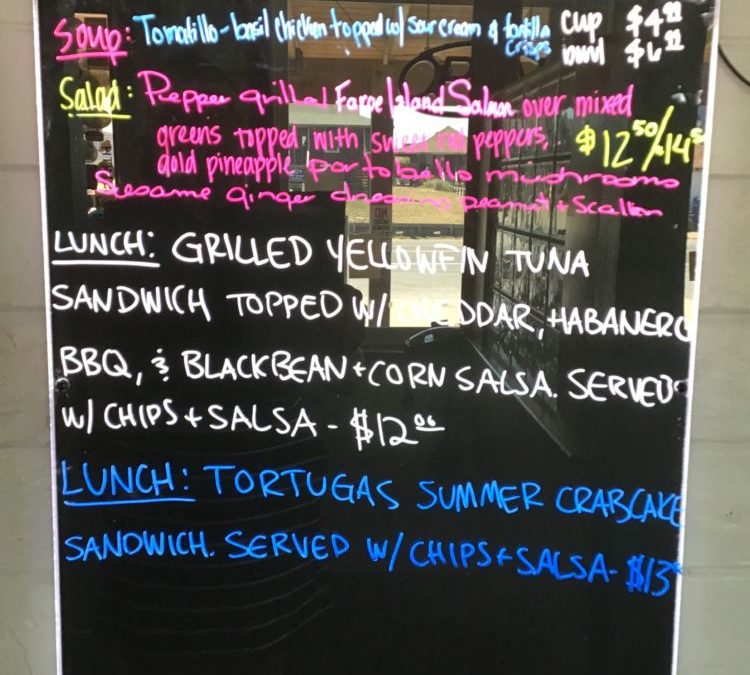 Soup: Tomatillo-basil chicken topped w/ sour cream & tortilla crisps cup $4.99
bowl $6.99
Salad: Pepper grilled Faroe Island Salmon over mixed
greens topped with sweet red peppers, $12.50/14.5
gold pineapple portobello mushrooms
Suesame ginger dressing peanut + Scallion
LUNCH: GRILLED YELLOWFIN TUNA
SANDWICH TOPPED W/ CHEDDAR, HABANERO
BBQ, & BLACKBEAN + CORN SALSA. SERVED
W/ CHIPS + SALSA - $12.00
LUNCH: TORTUGAS SUMMER CRABCAKE
SANDWICH. SERVED W/ CHIPS + SALSA - $13